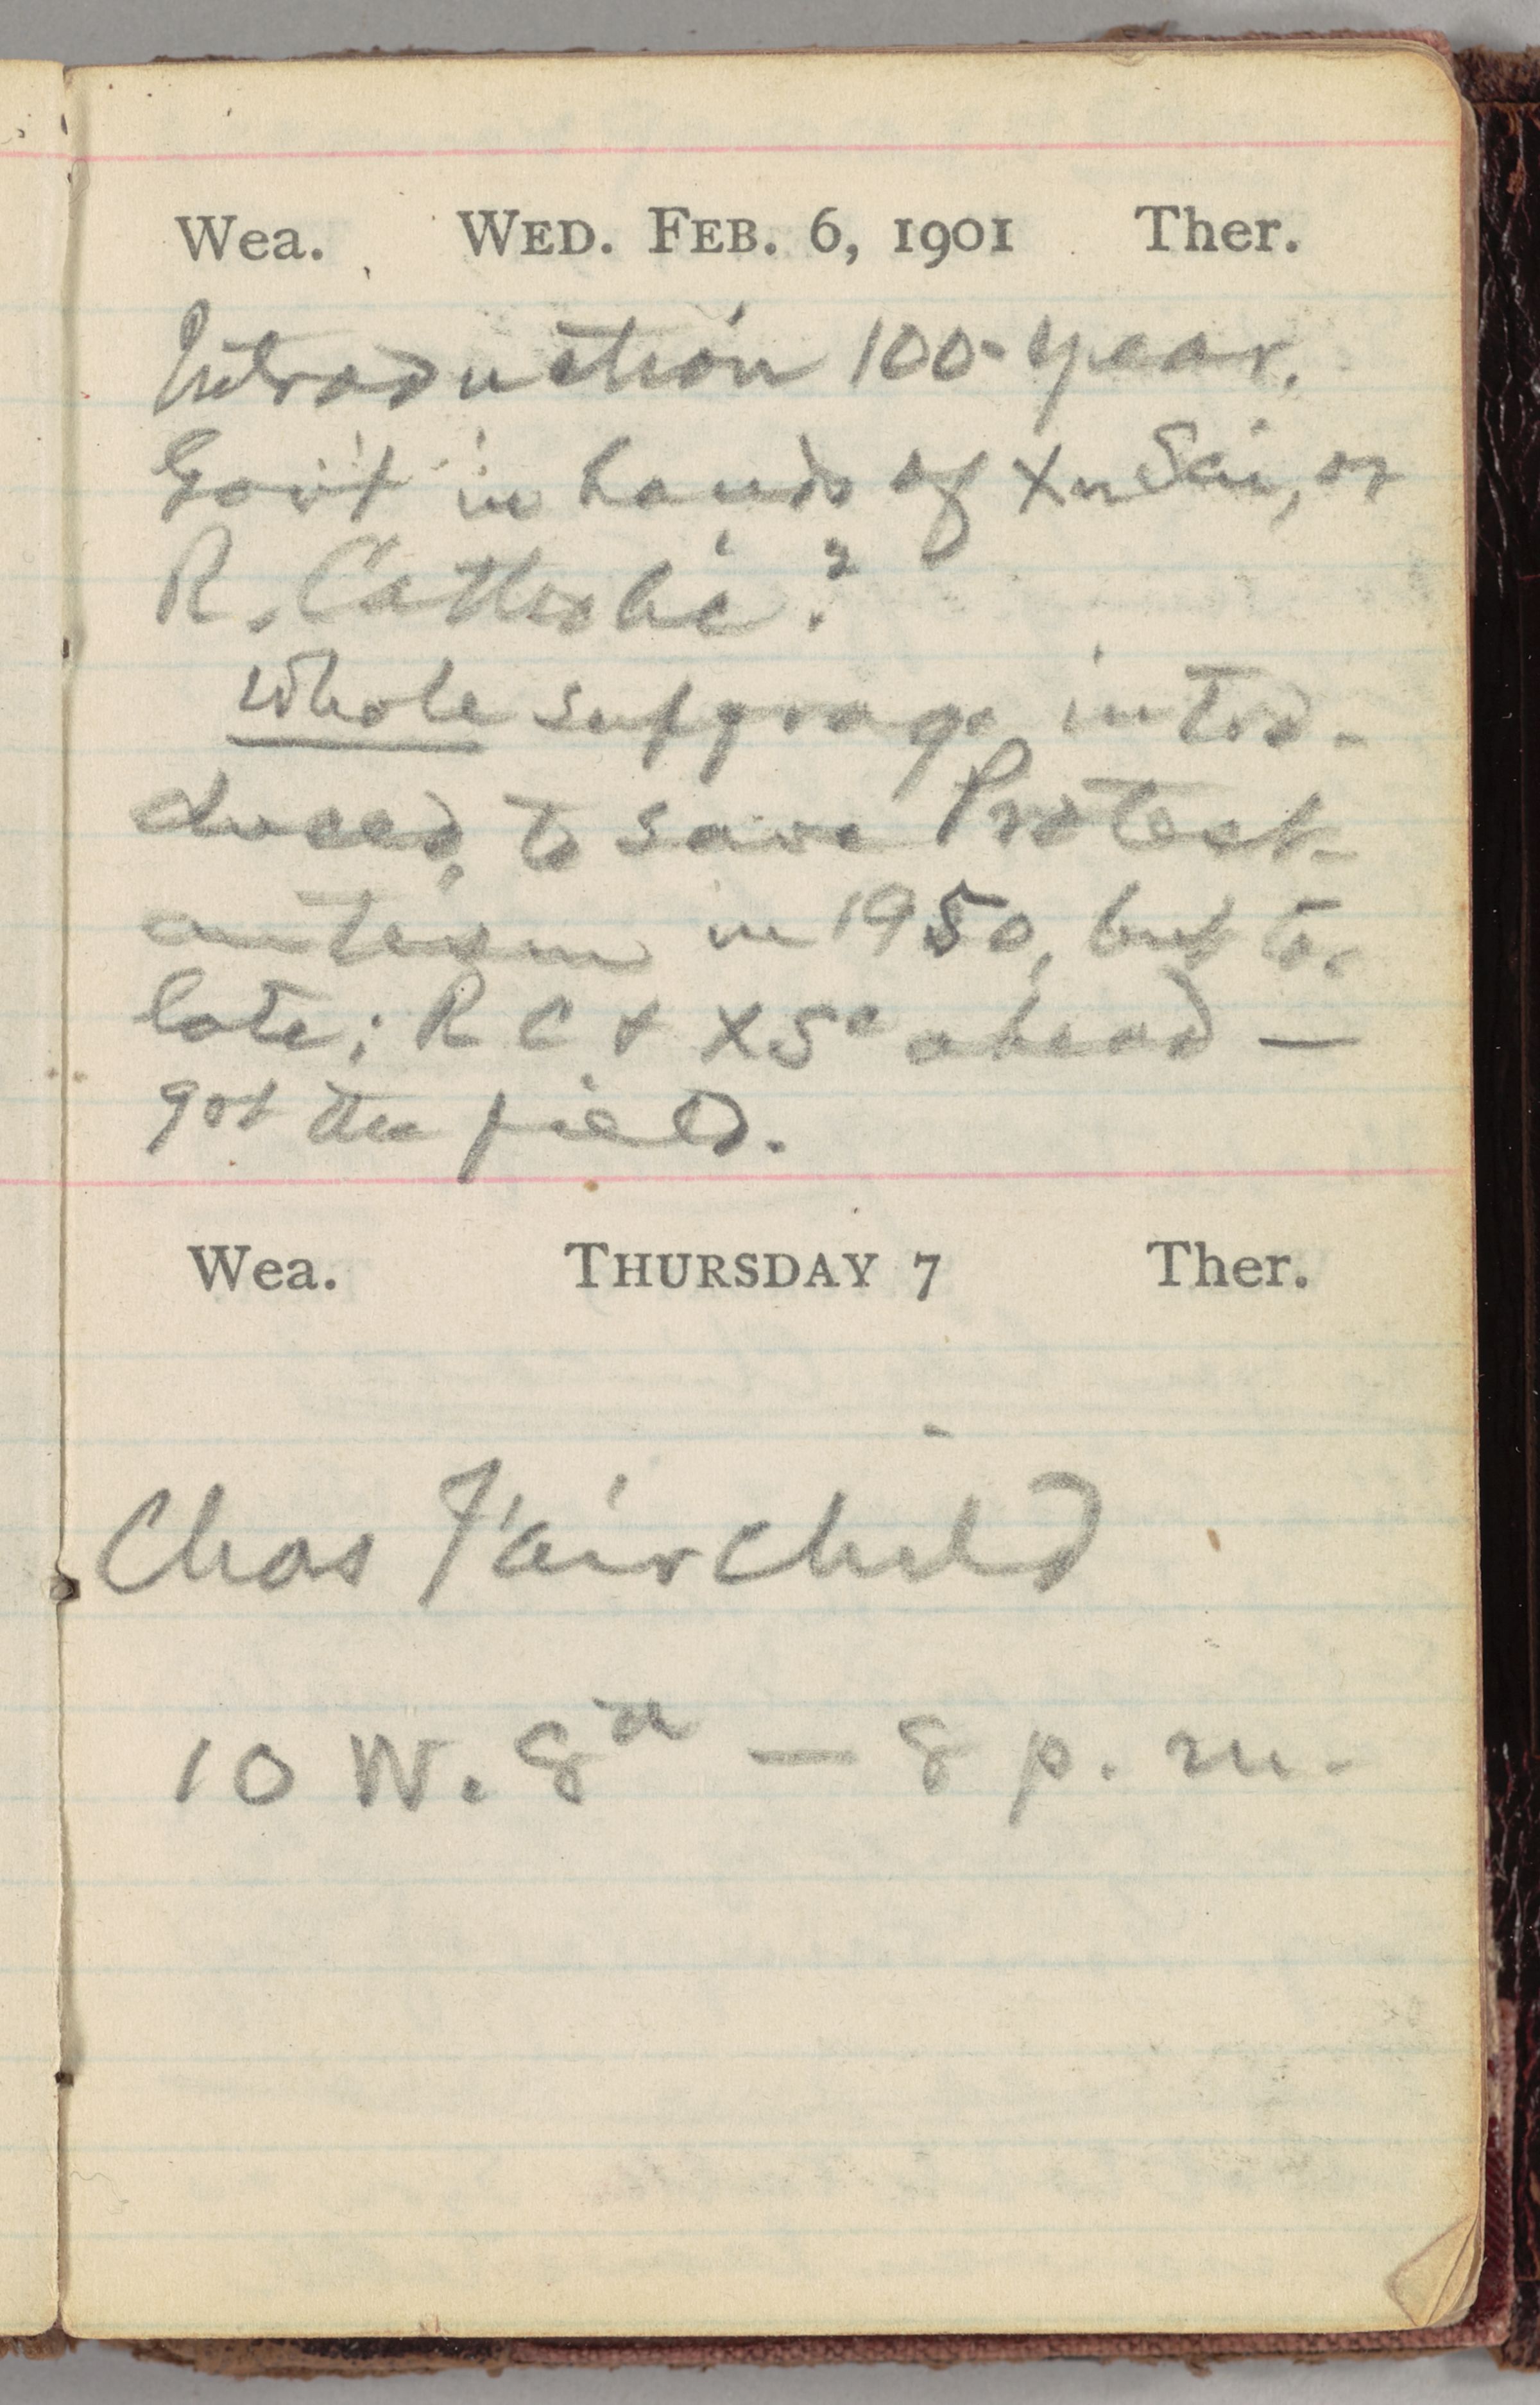 Wea. WED. FEB. 6, 1901 Ther.
Introduction 100-year.
Gov't in hands of Xn Sci, or
R. Catholic?
Whole suffrage intro-
duced, to save Protest-
antism in 1950, but too
late; R C & XSc ahead —
got the field.
Wea. THURSDAY 7 Ther.
Chas Fairchild
10 W. 8th — 8 p. m.